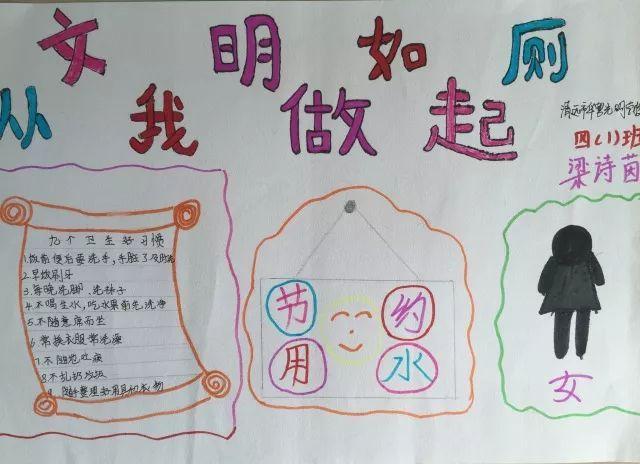 文明如厕
从我做起
清远市华
四(1)班
梁诗茵
九个卫生好习惯
1.饭前便后要洗手,手脏了及时洗
2.早晚刷牙
3.每晚洗脚、洗袜子
4.不喝生水,吃水果前先洗净
5.不随意席而坐
6.常换衣服常洗澡
7.不随地吐痰
8.不乱扔垃圾
9.随时整理好用具和衣物
节约
用水
女